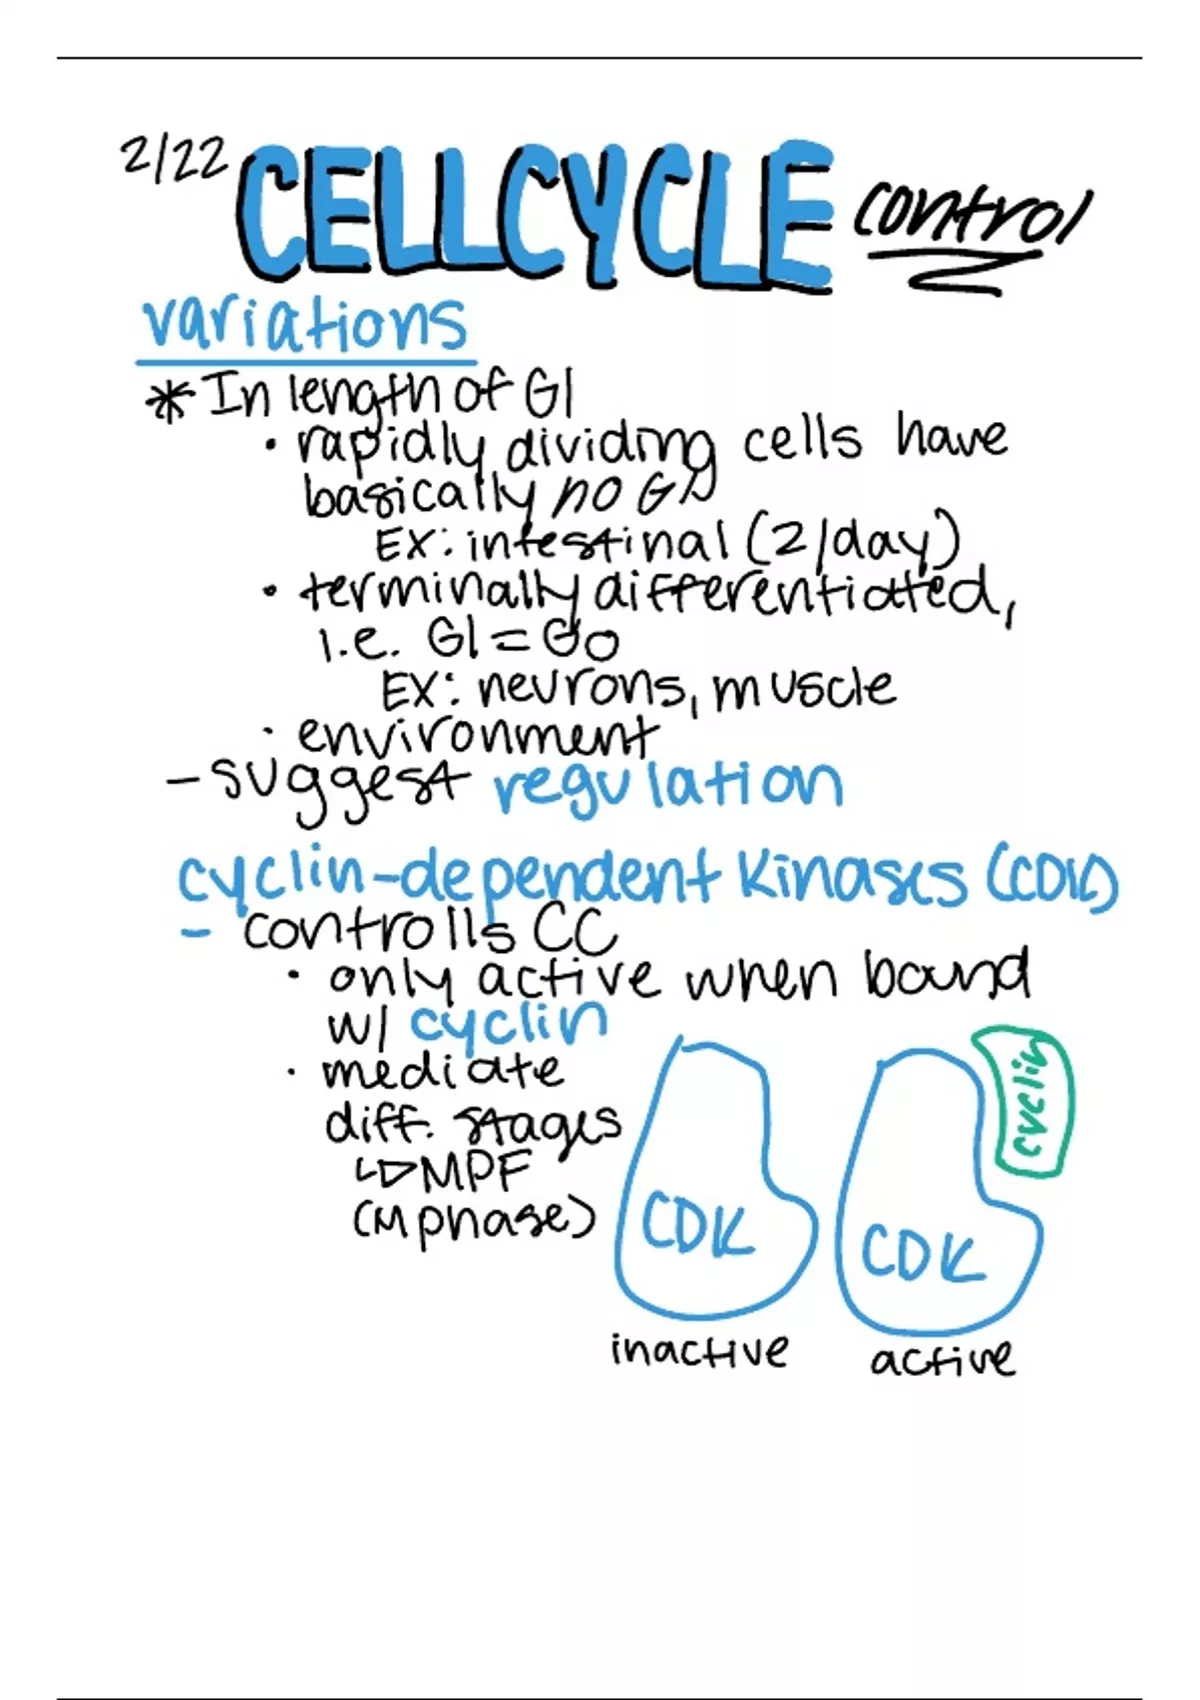 2/22 CELLCYCLE control
variations
* In length of G1
· rapidly dividing cells have
basically no G1
EX: intestinal (2/day)
· terminally differentiated,
i.e. G1 = G0
EX: neurons, muscle
· environment
- suggest regulation
cyclin-dependent kinases (CDK)
- controlls CC
· only active when bound
w/ cyclin
· mediate
diff. stages
↳ MPF
(M phase)
CDK
inactive
cyclin
CDK
active